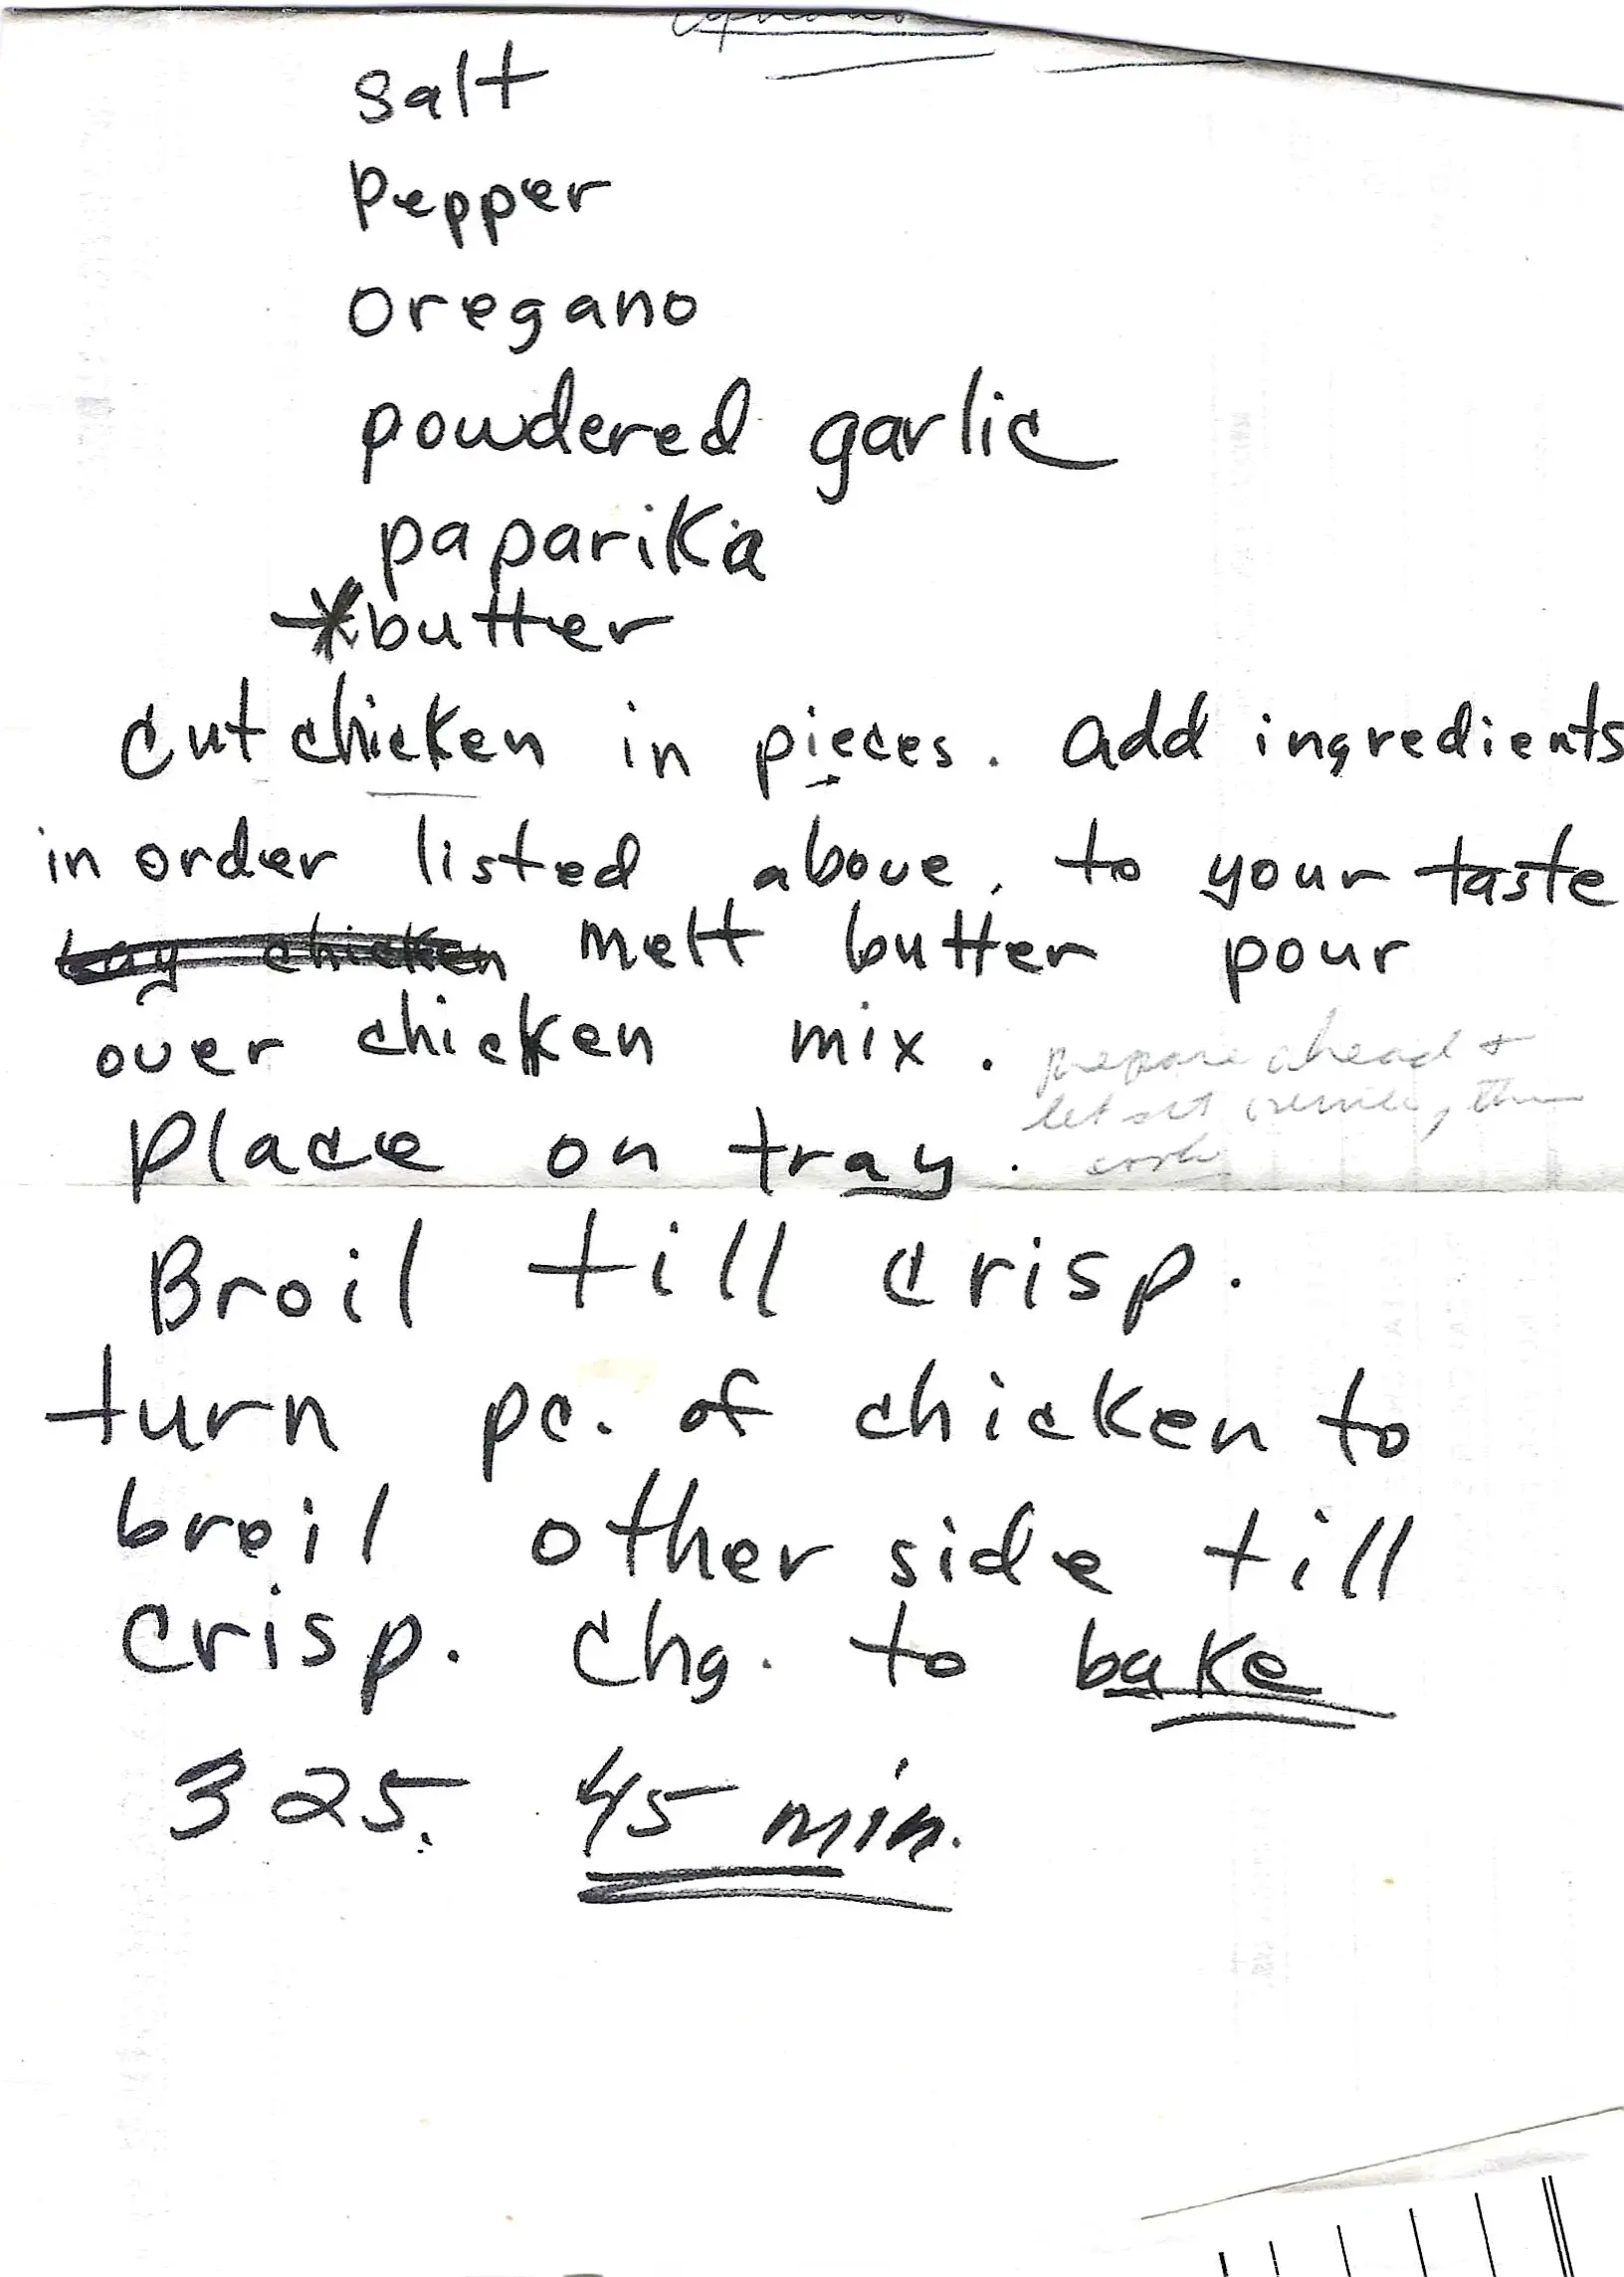 Salt
Pepper
Oregano
powdered garlic
paparika
*butter
Cut chicken in pieces. add ingredients
in order listed above, to your taste
melt butter pour
over chicken mix.
prepare ahead &
let set
Place on tray.
cook
Broil till crisp.
turn pc. of chicken to
broil other side till
crisp. Chg. to bake
325. 45 min.